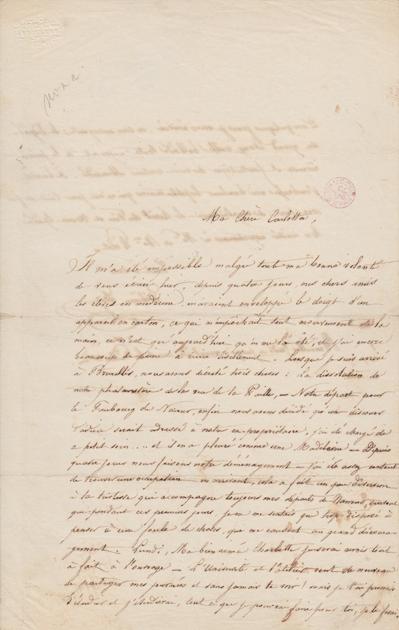 Ma Chère Carlotta,
Il m'a été impossible malgré toute ma bonne volonté
de vous écrire hier, depuis quatre jours, mes chers amis
les élèves en médecine, m'avaient enveloppé le doigt d'un
appareil en carton, ce qui m'empêchait tout mouvement de la
main, ce n'est que aujourd'hui qu'on me l'a ôté, et j'ai encore
beaucoup de peine à écrire lisiblement. Lorsque je suis arrivé
à Bruxelles, nous avons décrété trois choses : La dissolution de
notre phalanstère de la rue de la Paille, — Notre départ pour
le Faubourg de Namur, enfin nous avons décidé qu'un discours
d'adieu serait adressé à notre ex-propriétaire, j'ai été chargé de
ce petit soin .... et il en a pleuré comme une Madeleine — Depuis
quatre jours nous faisons notre déménagement — j'ai été assez content
de trouver une occupation en arrivant, cela a fait un peu diversion
à la tristesse qui accompagne toujours mes départs de Namur, surtout
que pendant ces premiers jours, je ne me sentais que trop disposé à
penser à une foule de choses, qui me causent un grand découra-
gement. Lundi, Ma bien aimée Charlotte je serai tout
à fait à l'ouvrage — L'Université et l'atelier vont de nouveau
se partager mes journées et sans jamais te voir ! mais je t'ai promis
d'étudier et j'étudierai, tout ce que je pourrai faire pour toi, je le ferai,